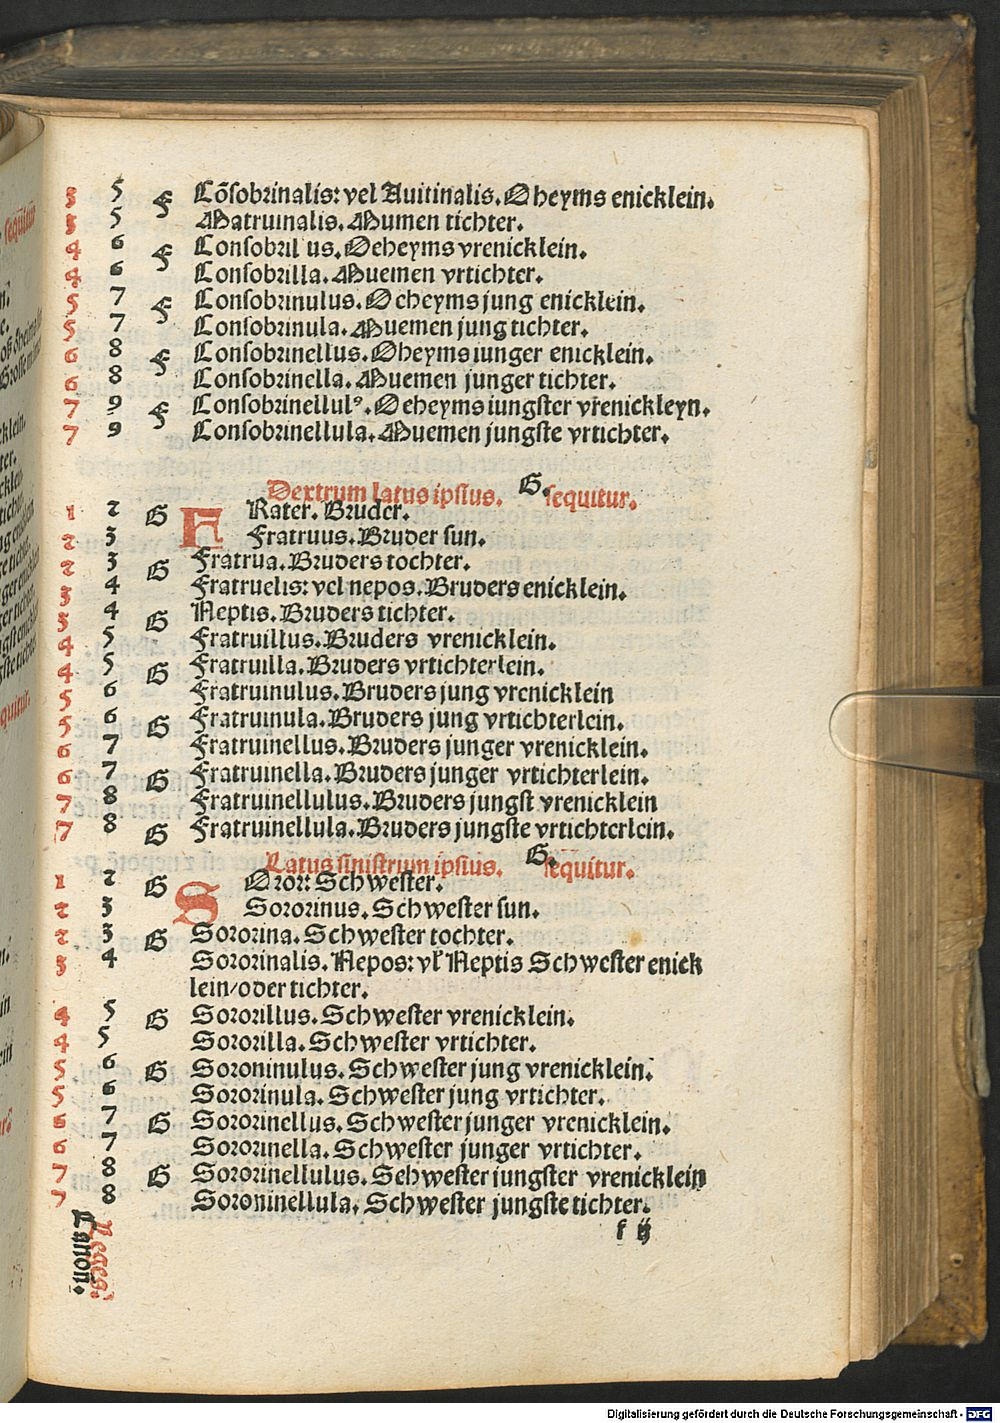 3 5 F Cõsobrinalis: vel Auitinalis. Oheyms enicklein.
3 5 Matruinalis. Mumen tichter.
4 6 F Consobril us. Oeheyms vrenicklein.
4 6 Consobrilla. Muemen vrtichter.
5 7 F Consobrinulus. Oeheyms jung enicklein.
5 7 Consobrinula. Muemen jung tichter.
6 8 F Consobrinellus. Oheyms iunger enicklein.
6 8 Consobrinella. Muemen junger tichter.
7 9 F Consobrinellulꝰ. Oeheyms iungster vrenickleyn.
7 9 Consobrinellula. Muemen jungste vrtichter.
Dextrum latus ipsius. G. sequitur.
1 2 G FRater. Bruder.
2 3 Fratruus. Bruder sun.
2 3 G Fratrua. Bruders tochter.
3 4 Fratruelis: vel nepos. Bruders enicklein.
3 4 G Neptis. Bruders tichter.
4 5 Fratruillus. Bruders vrenicklein.
4 5 G Fratruilla. Bruders vrtichterlein.
5 6 Fratruinulus. Bruders jung vrenicklein
5 6 G Fratruinula. Bruders jung vrtichterlein.
6 7 Fratruinellus. Bruders junger vrenicklein.
6 7 G Fratruinella. Bruders junger vrtichterlein.
7 8 Fratruinellulus. Bruders jungst vrenicklein
7 8 G Fratruinellula. Bruders jungste vrtichterlein.
Latus sinistrum ipsius. G. sequitur.
1 2 G SOror: Schwester.
2 3 Sororinus. Schwester sun.
2 3 G Sororina. Schwester tochter.
3 4 Sororinalis. Nepos: vl̕ Neptis Schwester enick
lein/oder tichter.
4 5 G Sororillus. Schwester vrenicklein.
4 5 Sororilla. Schwester vrtichter.
5 6 G Soroninulus. Schwester jung vrenicklein.
5 6 Sororinula. Schwester jung vrtichter.
6 7 G Sororinellus. Schwester junger vrenicklein.
6 7 Sororinella. Schwester junger vrtichter.
7 8 G Sororinellulus. Sehwester jungster vrenicklein
7 8 Soroninellula. Schwester jungste tichter.
f ij
Leges.
Canon.
Digitalisierung gefördert durch die Deutsche Forschungsgemeinschaft - DFG